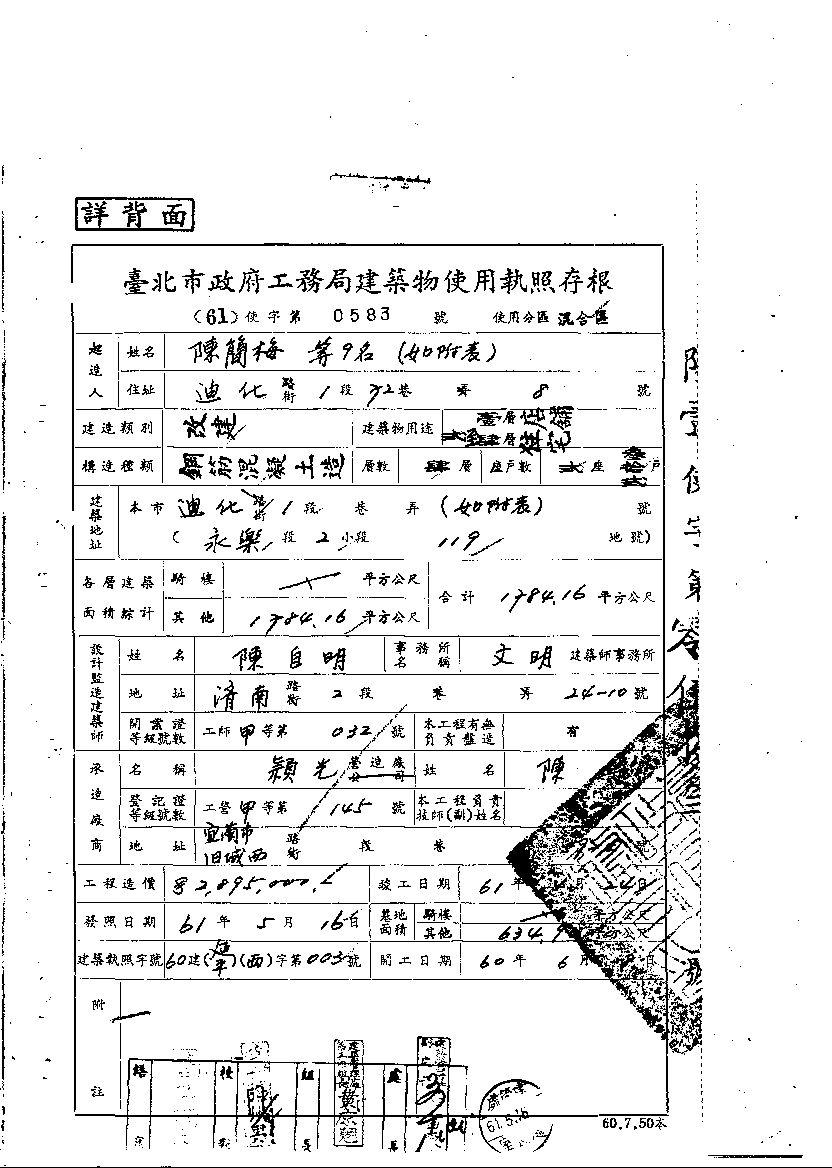 詳背面
臺北市政府工務局建築物使用執照存根
(61)使字第 0583 號 使用分區 混合區
起造人 姓名 陳簡梅 等9名(如附表)
住址 迪化 路街 1 段 72 巷 弄 8 號
建造類別 改建 建築物用途 壹層店舖
層住宅
構造種類 鋼筋混凝土造 層數 肆層 座戶數 座 戶
建築地址 本市 迪化 路街 1 段 巷 弄 (如附表) 號
(永樂 段 2 小段 119 地號)
各層建築面積綜計 騎樓 平方公尺 合計 1784.16 平方公尺
其他 1784.16 平方公尺
設計監造建築師 姓名 陳自明 事務所名稱 文明 建築師事務所
地址 濟南 路街 2 段 巷 弄 24-10 號
開業證等級號數 工師 甲 等第 032 號 本工程有無負責監造 有
承造廠商 名稱 穎光 營造廠公司 姓名 陳
登記證等級號數 工營 甲 等第 145 號 本工程負責技師(副)姓名
地址 宜蘭市旧城西 路街 段 巷 號
工程造價 2,895,000 竣工日期 61 年 月 24 日
發照日期 61 年 5 月 16 日 基地面積 騎樓 平方公尺
其他 634.9 平方公尺
建築執照字號 60建( )(西)字第003號 開工日期 60 年 6 月 日
附註
61.5.16
60.7.50本